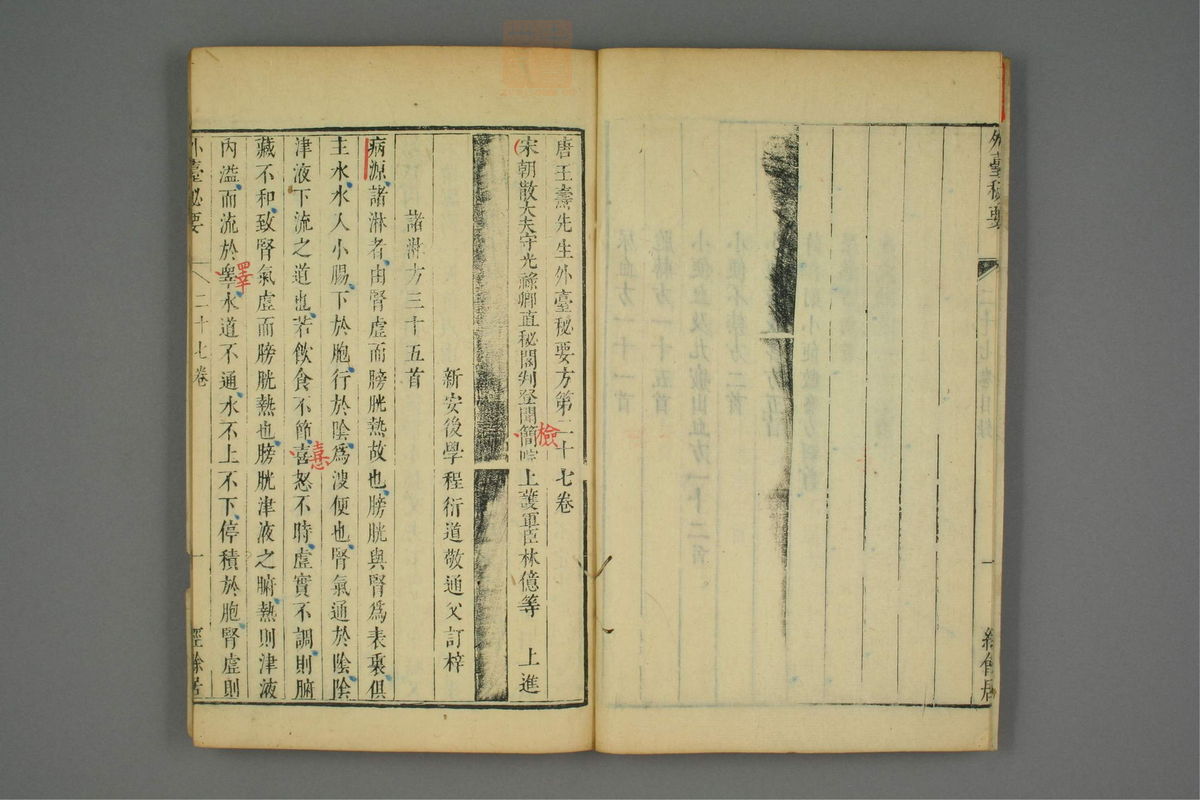 外臺秘要
二十七卷目錄
一
經餘居
唐王燾先生外臺秘要方第二十七卷
宋朝散大夫守光祿卿直秘閣判登聞簡院上護軍臣林億等 上進
檢
新安後學程衍道敬通父訂梓
諸淋方三十五首
病源諸淋者由腎虛而膀胱熱故也膀胱與腎爲表裏俱
主水水入小腸下於胞行於陰爲溲便也腎氣通於陰陰
津液下流之道也若飲食不節喜怒不時虛實不調則腑
憙
藏不和致腎氣虛而膀胱熱也膀胱津液之腑熱則津液
內溢而流於睾水道不通水不上不下停積於胞腎虛則
睪
外臺秘要
二十七卷
一
經餘居